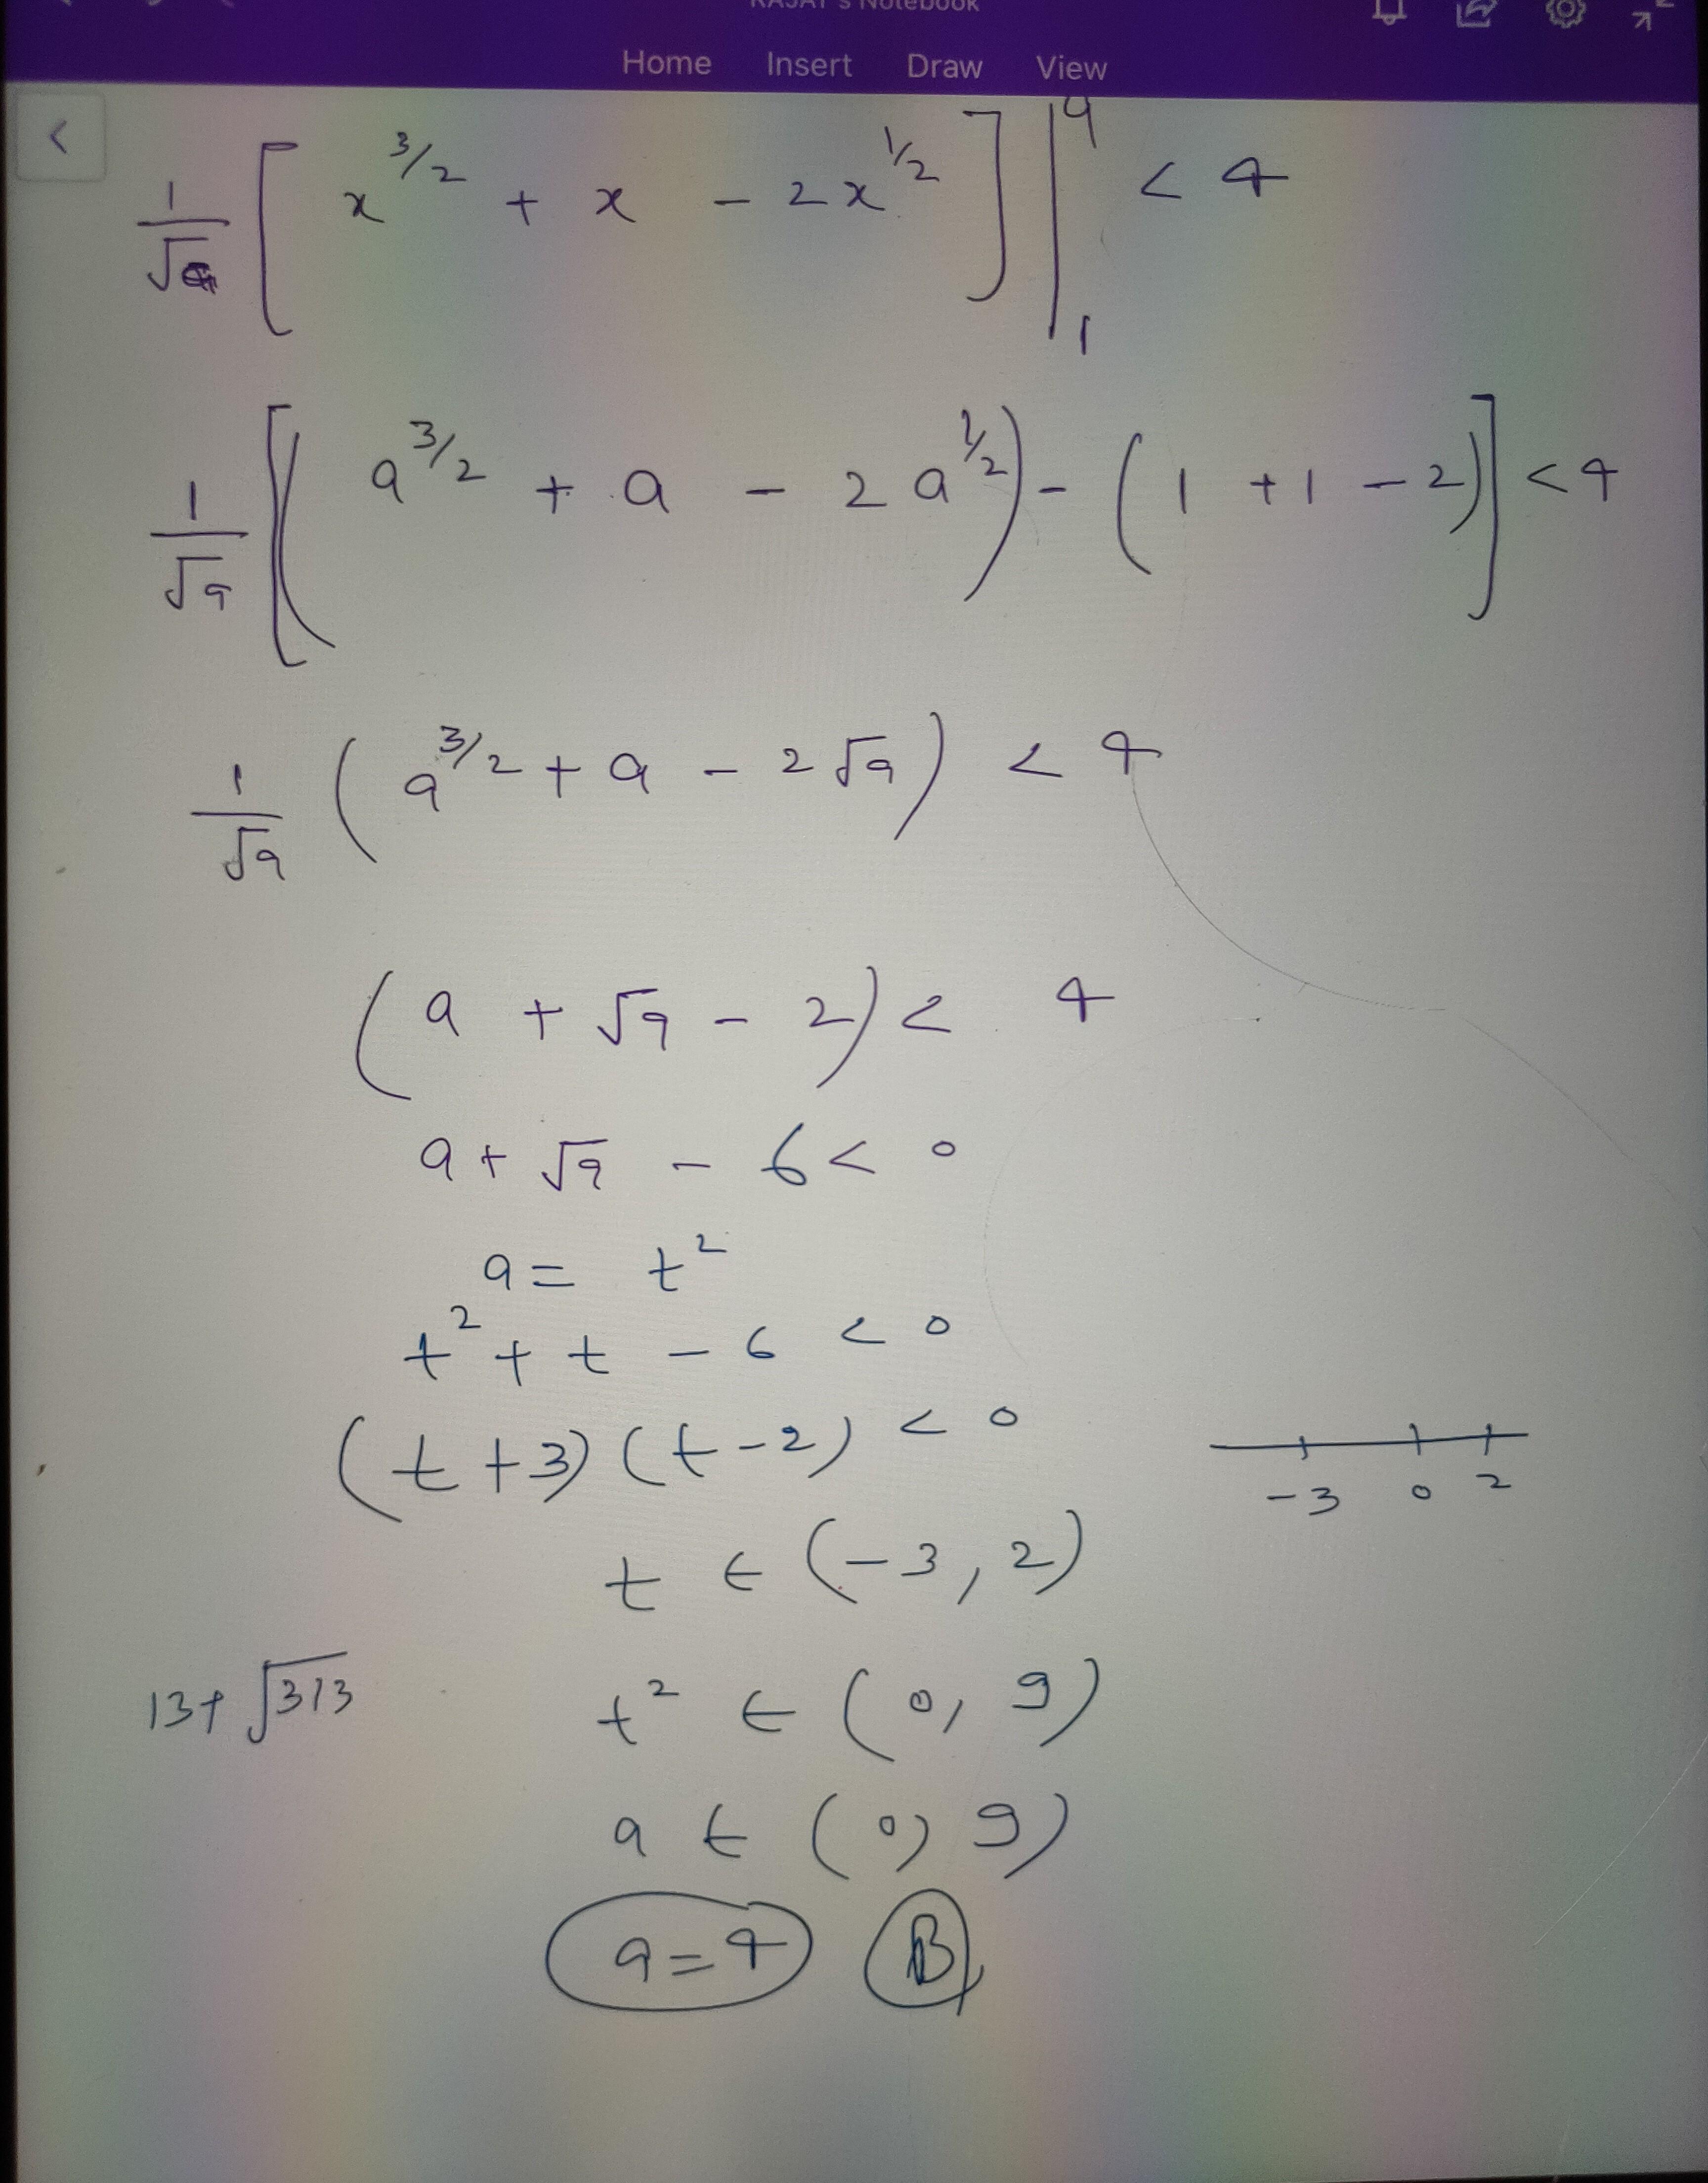 RAJAT's Notebook
Home Insert Draw View
1/√a [ x^3/2 + x - 2x^1/2 ] |_1^a < 4
1/√a [( a^3/2 + a - 2a^1/2 ) - ( 1 + 1 - 2 )] < 4
1/√a ( a^3/2 + a - 2√a ) < 4
( a + √a - 2 ) < 4
a + √a - 6 < 0
a = t^2
t^2 + t - 6 < 0
(t + 3) (t - 2) < 0
-3 0 2
t ∈ (-3, 2)
13+ √313
t^2 ∈ (0, 9)
a ∈ (0, 9)
a = 4 B